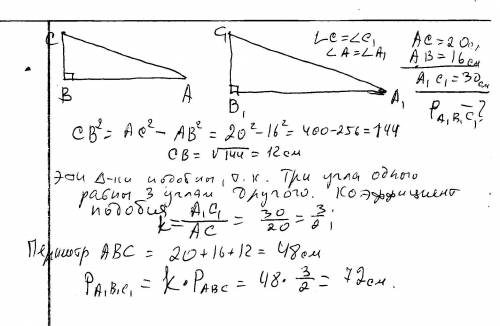 C
B
A
C₁
B₁
A₁
∠C=∠C₁
∠A=∠A₁
AC=20,
AB=16см
A₁C₁=30см
P A₁B₁C₁ - ?
CB² = AC² - AB² = 20² - 16² = 400 - 256 = 144
CB = √144 = 12 см
Эти Δ-ки подобны, т.к. Три угла одного
равны 3 углам другого. Коэффициент
подобия
k = A₁C₁/AC = 30/20 = 3/2;
Периметр ABC = 20+16+12 = 48 см
P A₁B₁C₁ = k · P ABC = 48 · 3/2 = 72 см.